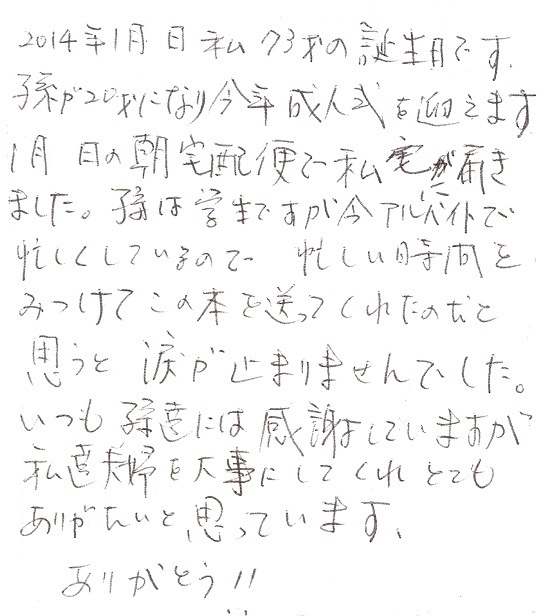 2014年1月 日 私 73才の誕生日です.
孫が20才になり今年成人式を迎えます
1月 日の朝宅配便で私宛に届き
ました。孫は学生ですが今アルバイトで
忙しくしているので 忙しい時間を
みつけてこの本を送ってくれたのだと
思うと涙が止まりませんでした。
いつも孫達には感謝をしていますが
私達夫婦を大事にしてくれとても
ありがたいと思っています.
ありがとう!!